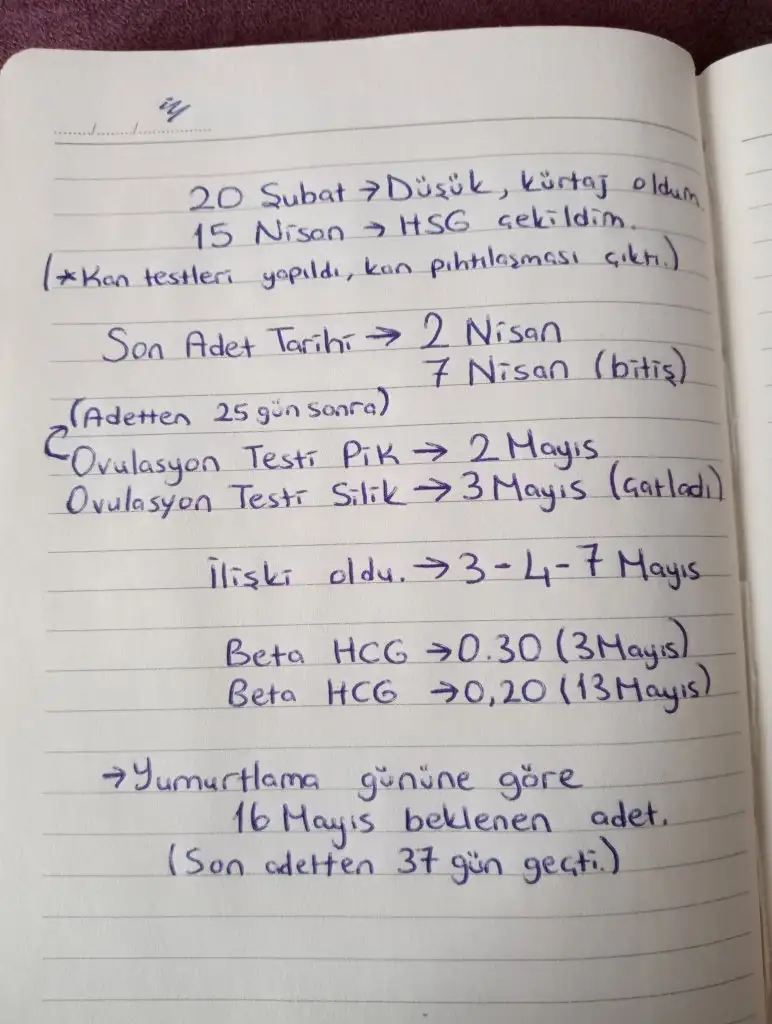 20 Şubat → Düşük, kürtaj oldum.
15 Nisan → HSG çekildim.
(*Kan testleri yapıldı, kan pıhtılaşması çıktı.)
Son Adet Tarihi → 2 Nisan
7 Nisan (bitiş)
(Adetten 25 gün sonra)
Ovulasyon Testi Pik → 2 Mayıs
Ovulasyon Testi Silik → 3 Mayıs (çatladı)
İlişki oldu. → 3-4-7 Mayıs
Beta HCG → 0.30 (3 Mayıs)
Beta HCG → 0,20 (13 Mayıs)
→ Yumurtlama gününe göre
16 Mayıs beklenen adet.
(Son adetten 37 gün geçti.)